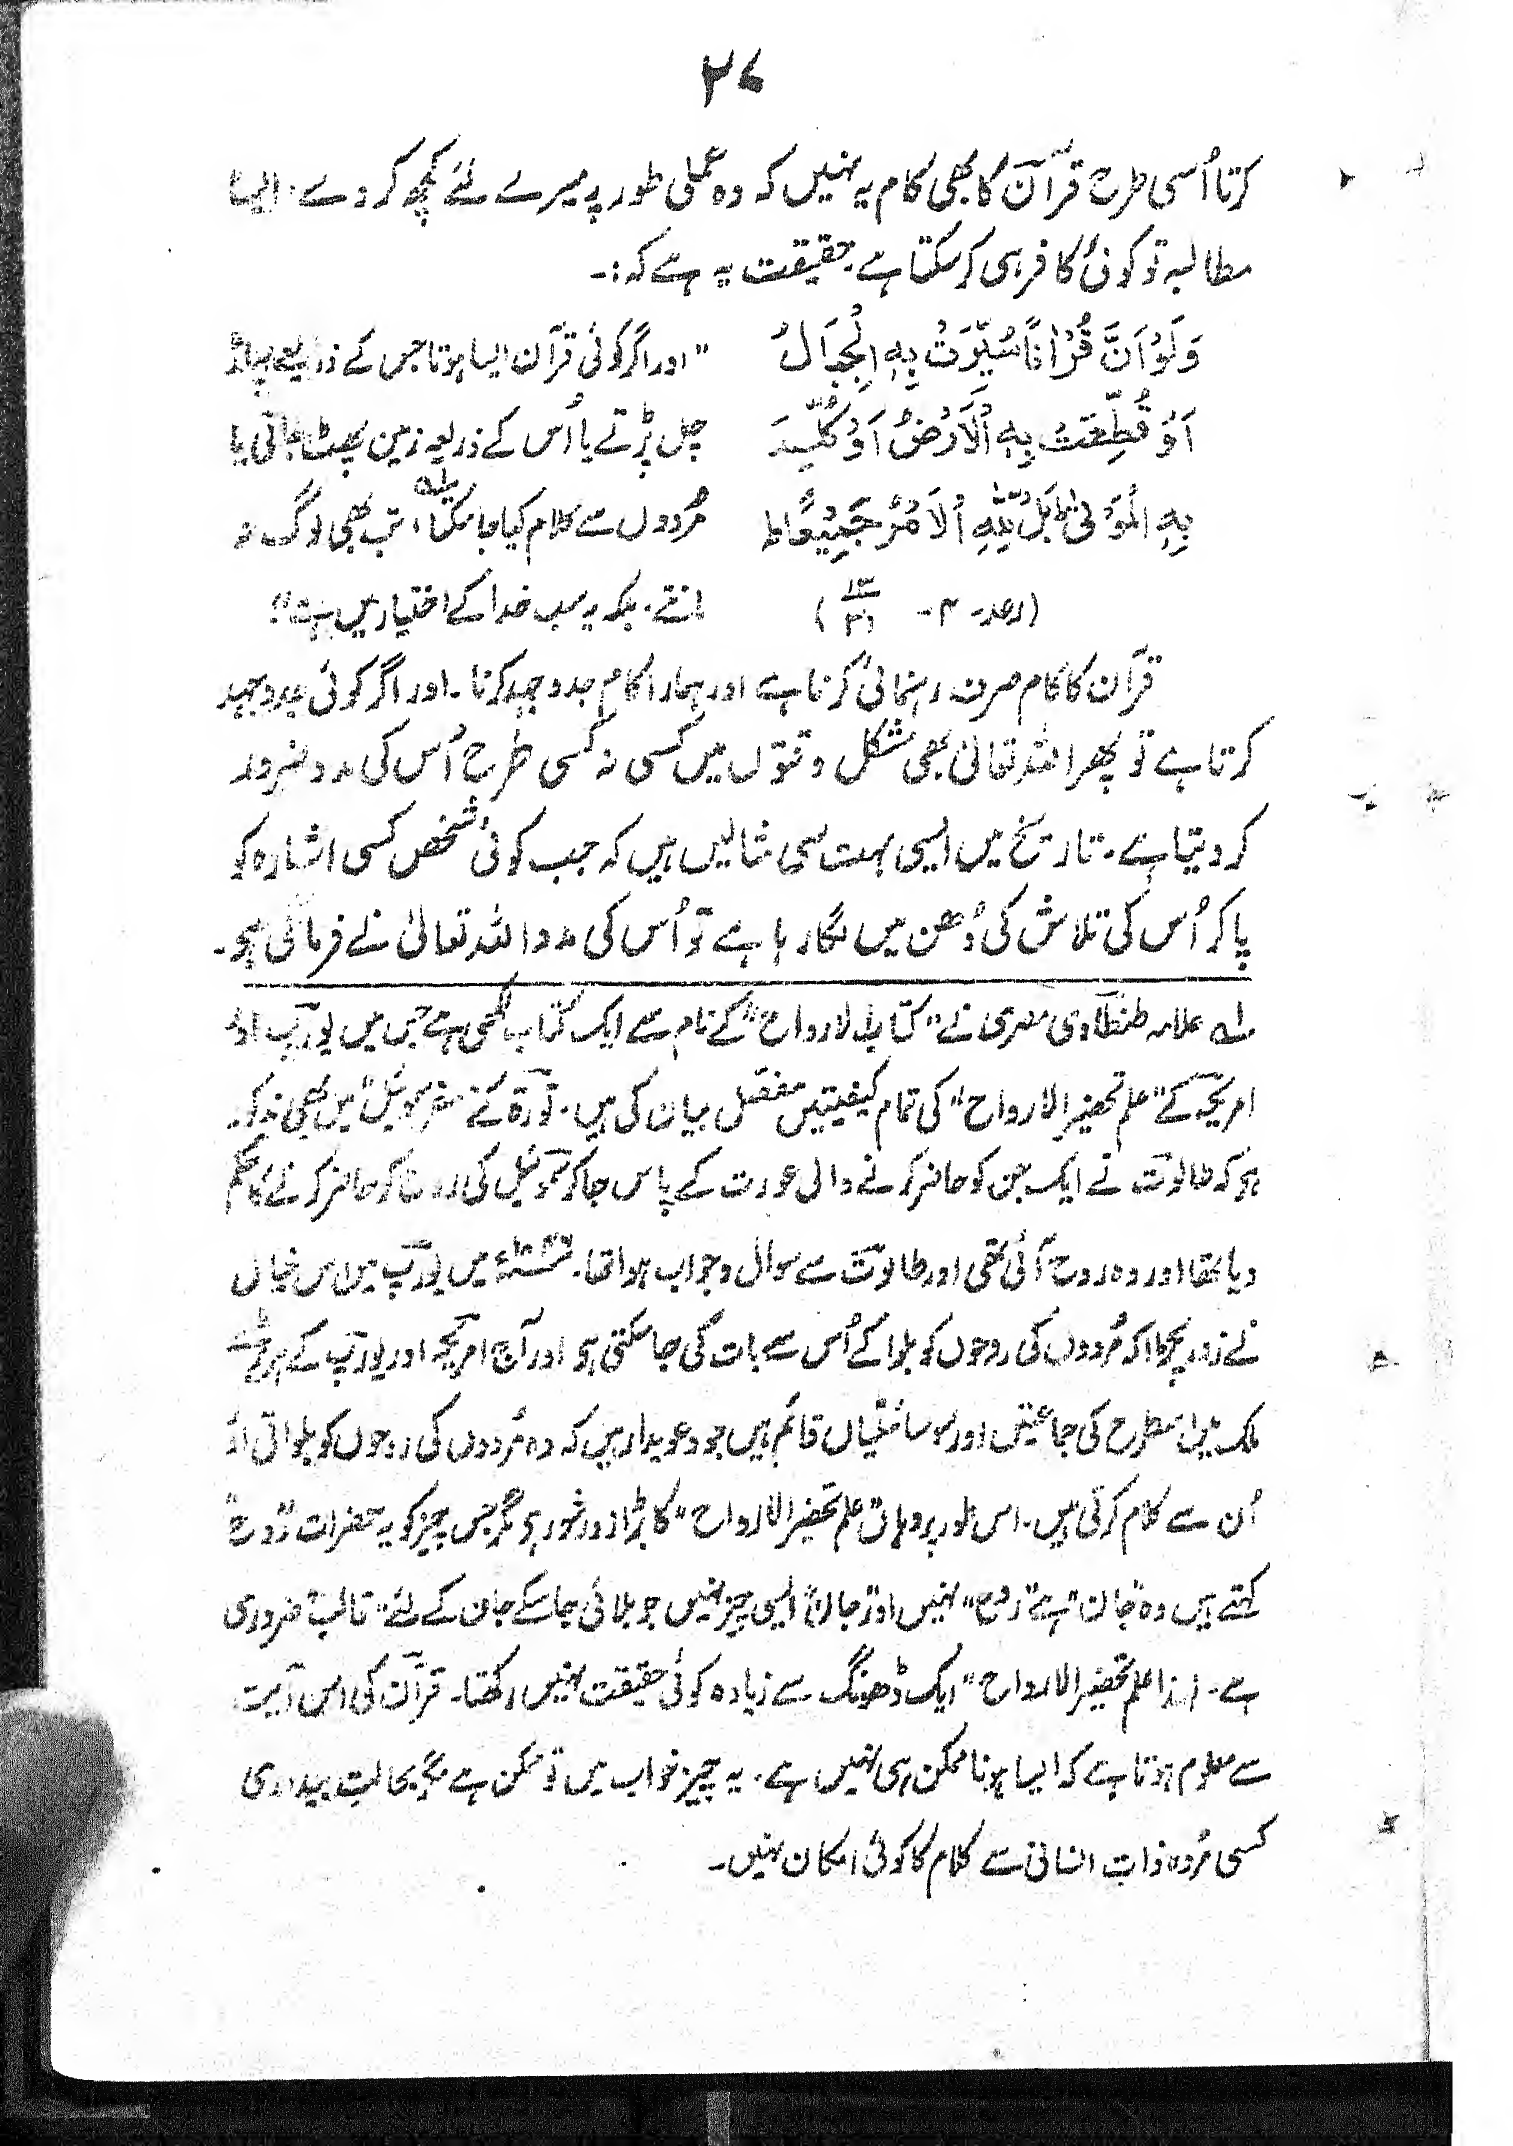 ۲۷
کرتا اُسی طرح قرآن کا بھی کام یہ نہیں کہ وہ عملی طور پر میرے لئے کچھ کر دے۔ ایسا
مطالبہ تو کوئی کافر ہی کر سکتا ہے۔ حقیقت یہ ہے کہ:۔
وَلَوْ اَنَّ قُرْاٰنًا سُیِّرَتْ بِهِ الْجِبَالُ
اَوْ قُطِّعَتْ بِهِ الْاَرْضُ اَوْ کُلِّمَ
بِهِ الْمَوْتٰی ؕ بَلْ لِّلّٰهِ الْاَمْرُ جَمِیْعًا ؕ
(رعد۔ ۴۔ ۱۳/۳۱)
"اور اگر کوئی قرآن ایسا ہوتا جس کے ذریعے پہاڑ
چل پڑتے یا اُس کے ذریعہ زمین پھٹ جاتی یا
مُردوں سے کلام کیا جا سکتا،ؔلہ تب بھی لوگ نہ
مانتے۔ بلکہ یہ سب خدا کے اختیار میں ہے"۔
قرآن کا کام صرف رہنمائی کرنا ہے اور ہمارا کام جدوجہد کرنا۔ اور اگر کوئی جدوجہد
کرتا ہے تو پھر اللہ تعالیٰ بھی مشکل وقتوں میں کسی نہ کسی طرح اُس کی مدد ضرور
کر دیتا ہے۔ تاریخ میں ایسی بہت سی مثالیں ہیں کہ جب کوئی شخص کسی اشارہ کو
پا کر اُس کی تلاش کی دُھن میں لگا رہا ہے تو اُس کی مدد اللہ تعالیٰ نے فرمائی ہو۔
لہ علامہ طنطاوی مصری نے "کتاب الارواح" کے نام سے ایک کتاب لکھی ہے جس میں یورپ اور
امریکہ کے "علم تحضیر الارواح" کی تمام کیفیتیں مفصل بیان کی ہیں۔ توراۃ کے سفر سموئیل میں بھی مذکور
ہو کہ طالوت نے ایک جن کو حاضر کرنے والی عورت کے پاس جا کر سموئیل کی روح کو حاضر کرنے کا حکم
دیا تھا اور وہ روح آئی تھی اور طالوت سے سوال و جواب ہوا تھا۔ میں یورپ میں اس خیال
نے زور پکڑا کہ مُردوں کی روحوں کو بلا کے اُس سے بات کی جا سکتی ہو اور آج امریکہ اور یورپ کے ہر بڑے
ملک میں اسطرح کی جماعتیں اور سوسائٹیاں قائم ہیں جو دعویدار ہیں کہ وہ مُردوں کی روحوں کو بلواتی اور
اُن سے کلام کرتی ہیں۔ اس طور پر وہاں "علم تحضیر الارواح" کا بڑا زور شور ہو مگر جس چیز کو یہ حضرات "روح"
کہتے ہیں وہ "جان" ہے "روح" نہیں اور "جان" ایسی چیز نہیں جو بلائی جا سکے جان کے لئے "قالب" ضروری
ہے۔ لہذا علم تحضیر الارواح" ایک ڈھونگ سے زیادہ کوئی حقیقت نہیں رکھتا۔ قرآن کی اس آیت
سے معلوم ہوتا ہے کہ ایسا ہونا ممکن ہی نہیں ہے۔ یہ چیز خواب میں تو ممکن ہے مگر بحالت بیداری
کسی مُردہ ذات انسانی سے کلام کا کوئی امکان نہیں۔